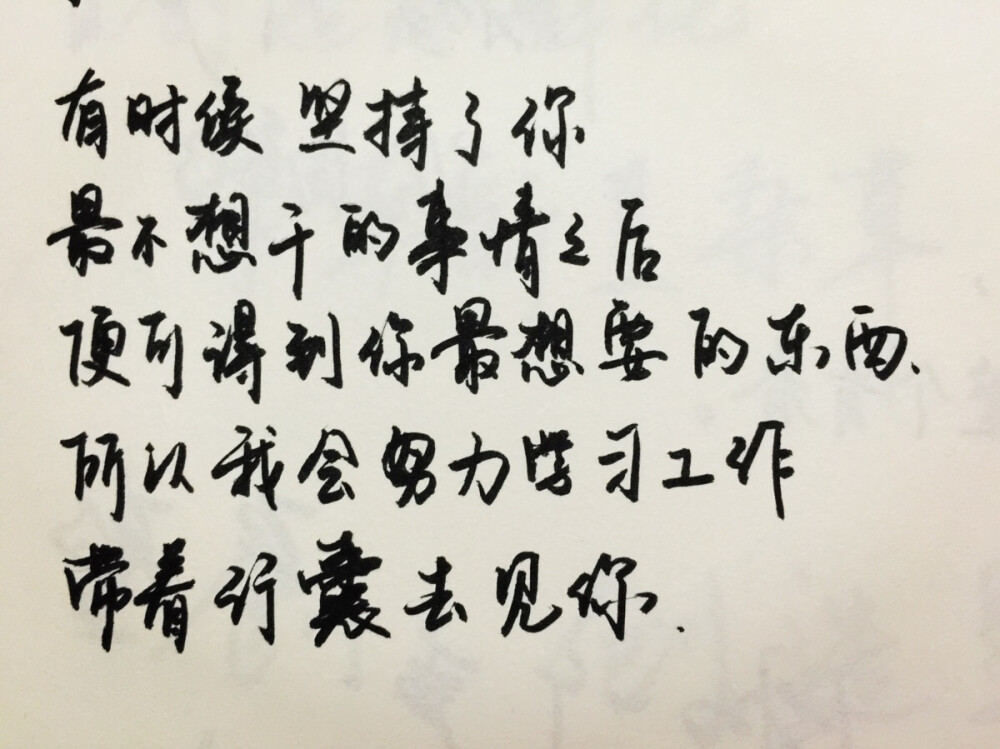 有时候 坚持了你
最不想干的事情之后
便可得到你最想要的东西、
所以我会努力学习工作
带着行囊去见你.